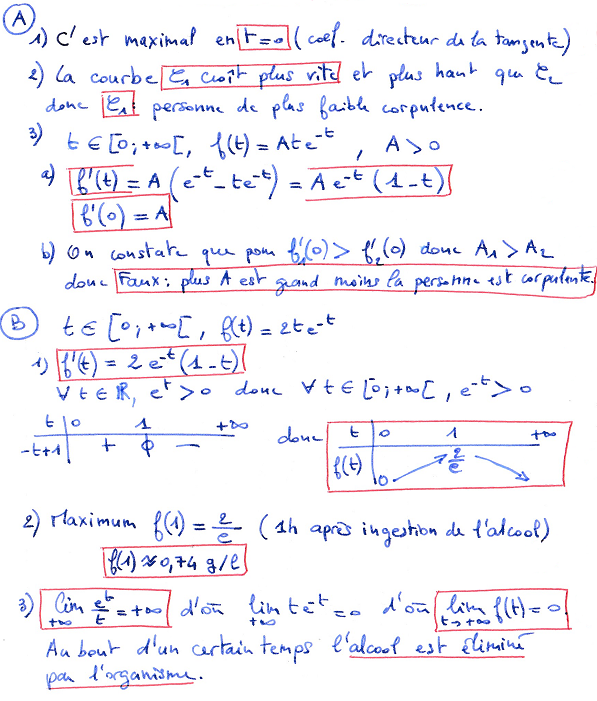 A
1) C' est maximal en t=0 (coef. directeur de la tangente)
2) La courbe C₁ croît plus vite et plus haut que C₂
donc C₁ : personne de plus faible corpulence.
3) t ∈ [0;+∞[, f(t) = Ate⁻ᵗ , A > 0
a) f'(t) = A(e⁻ᵗ - te⁻ᵗ) = A e⁻ᵗ (1-t)
f'(0) = A
b) On constate que pour f₁'(0) > f₂'(0) donc A₁ > A₂
donc Faux : plus A est grand moins la personne est corpulente.
B t ∈ [0;+∞[, f(t) = 2te⁻ᵗ
1) f'(t) = 2 e⁻ᵗ (1-t)
∀ t ∈ ℝ, eᵗ > 0 donc ∀ t ∈ [0;+∞[, e⁻ᵗ > 0
t 0 1 +∞
-t+1 + 0 -
donc t 0 1 +∞
f(t) 0 2/e
2) Maximum f(1) = 2/e (1h après ingestion de l'alcool)
f(1) ≈ 0,74 g/l
3) lim +∞ eᵗ/t = +∞ d'où lim +∞ te⁻ᵗ = 0 d'où lim t→+∞ f(t) = 0
Au bout d'un certain temps l'alcool est éliminé
par l'organisme.